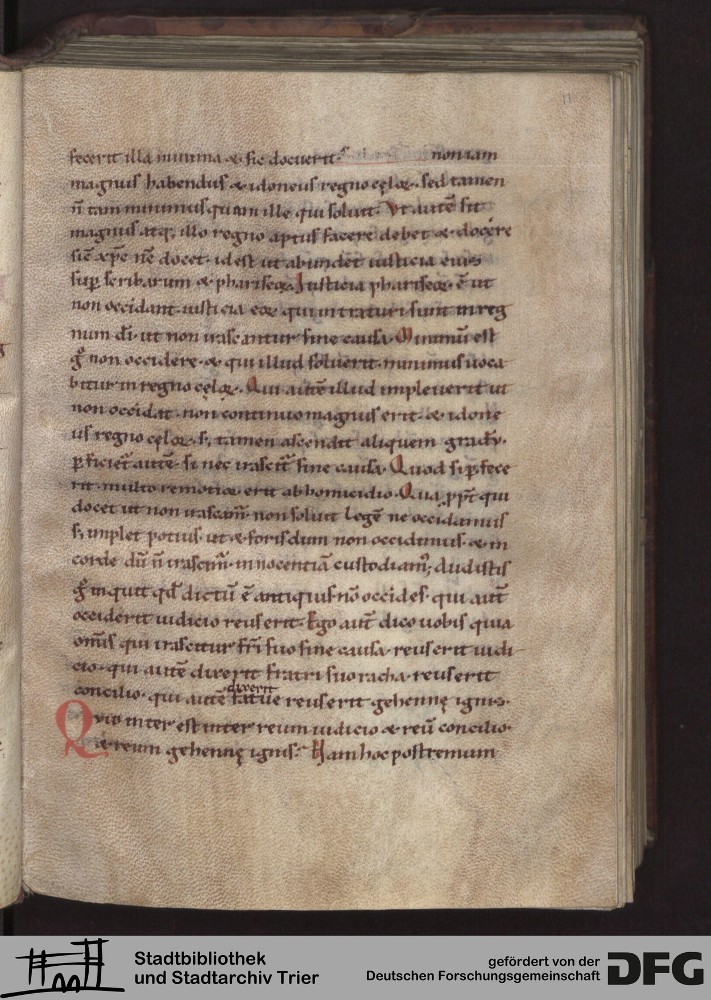 11
fecerit illa minima & sic docuerit non iam
magnus habendus & idoneus regno cęloꝝ. sed tamen
n̄ tam minimus quam ille qui soluit. Vt autē sit
magnus atq; illo regno aptus facere debet & docere
sic̄ xp̄c nc̄ docet. id est ut abundet iusticia eius
sup̲ scribarum & phariseoꝝ. Iusticia phariseoꝝ ē ut
non occidant. iusticia eoꝝ qui intraturi sunt in reg
num dī. ut non irascantur sine causa. Minimū est
g̊ non occidere. & qui illud soluerit. minimus uoca
bitur in regno cęloꝝ. Qui autē illud impleuerit ut
non occidat. non continuo magnus erit. & idone
us regno cęloꝝ. s; tamen ascendit aliquem gradū.
ꝑficiet̄ autē. si nec irascit̄ sine causa. Quod si ꝑfece
rit. multo remotior erit ab homicidio. Qua ꝓpt̄ qui
docet ut non irascam̄. non soluit legē ne occidamus
s; implet potius. ut & foris dum non occidimus. & in
corde dū n̄ irascim̄. innocentiā custodiam̄; Audistis
g̊ inquit qd̄ dictū ē antiquis. nō occides. qui aut̄
occiderit iudicio reus erit. Ego aut̄ dico uobis quia
omīs qui irascitur fr̄i suo sine causa. reus erit iudi
cio. qui autē dixerit fratri suo racha. reus erit
concilio. qui autē dixerit fatue reus erit gehennę ignis.
Quid inter est inter reum iudicio & reū concilio.
& reum gehennę ignis. Nam hoc postremum
Stadtbibliothek
und Stadtarchiv Trier
gefördert von der
Deutschen Forschungsgemeinschaft
DFG